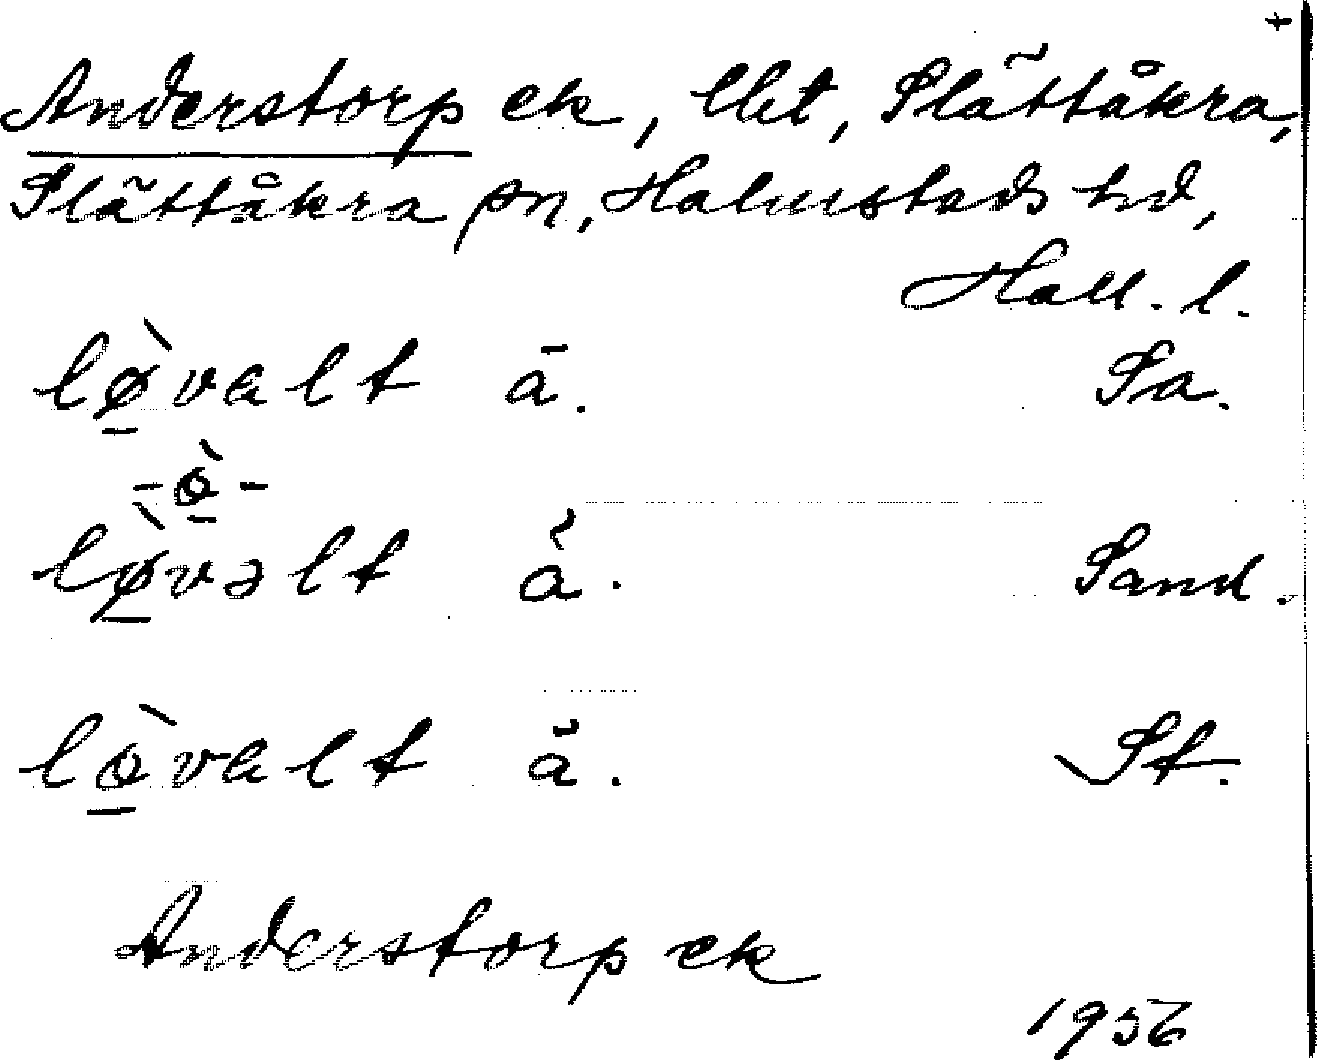 +
Anderstorp ek, lht, Slättåkra,
Slättåkra sn, Halmstads hd,
Hall. l.
lø̱̀valt ā. Sa.
-ò̱-
lø̱̀vəlt å. Sand.
lò̱valt ă. St.
Anderstorp ek
1956